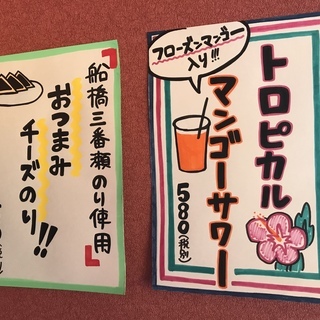 フローズンマンゴー
入り!!!
トロピカル
マンゴーサワー
580(税別)
「船橋三番瀬のり使用」
おつまみ
チーズのり!!